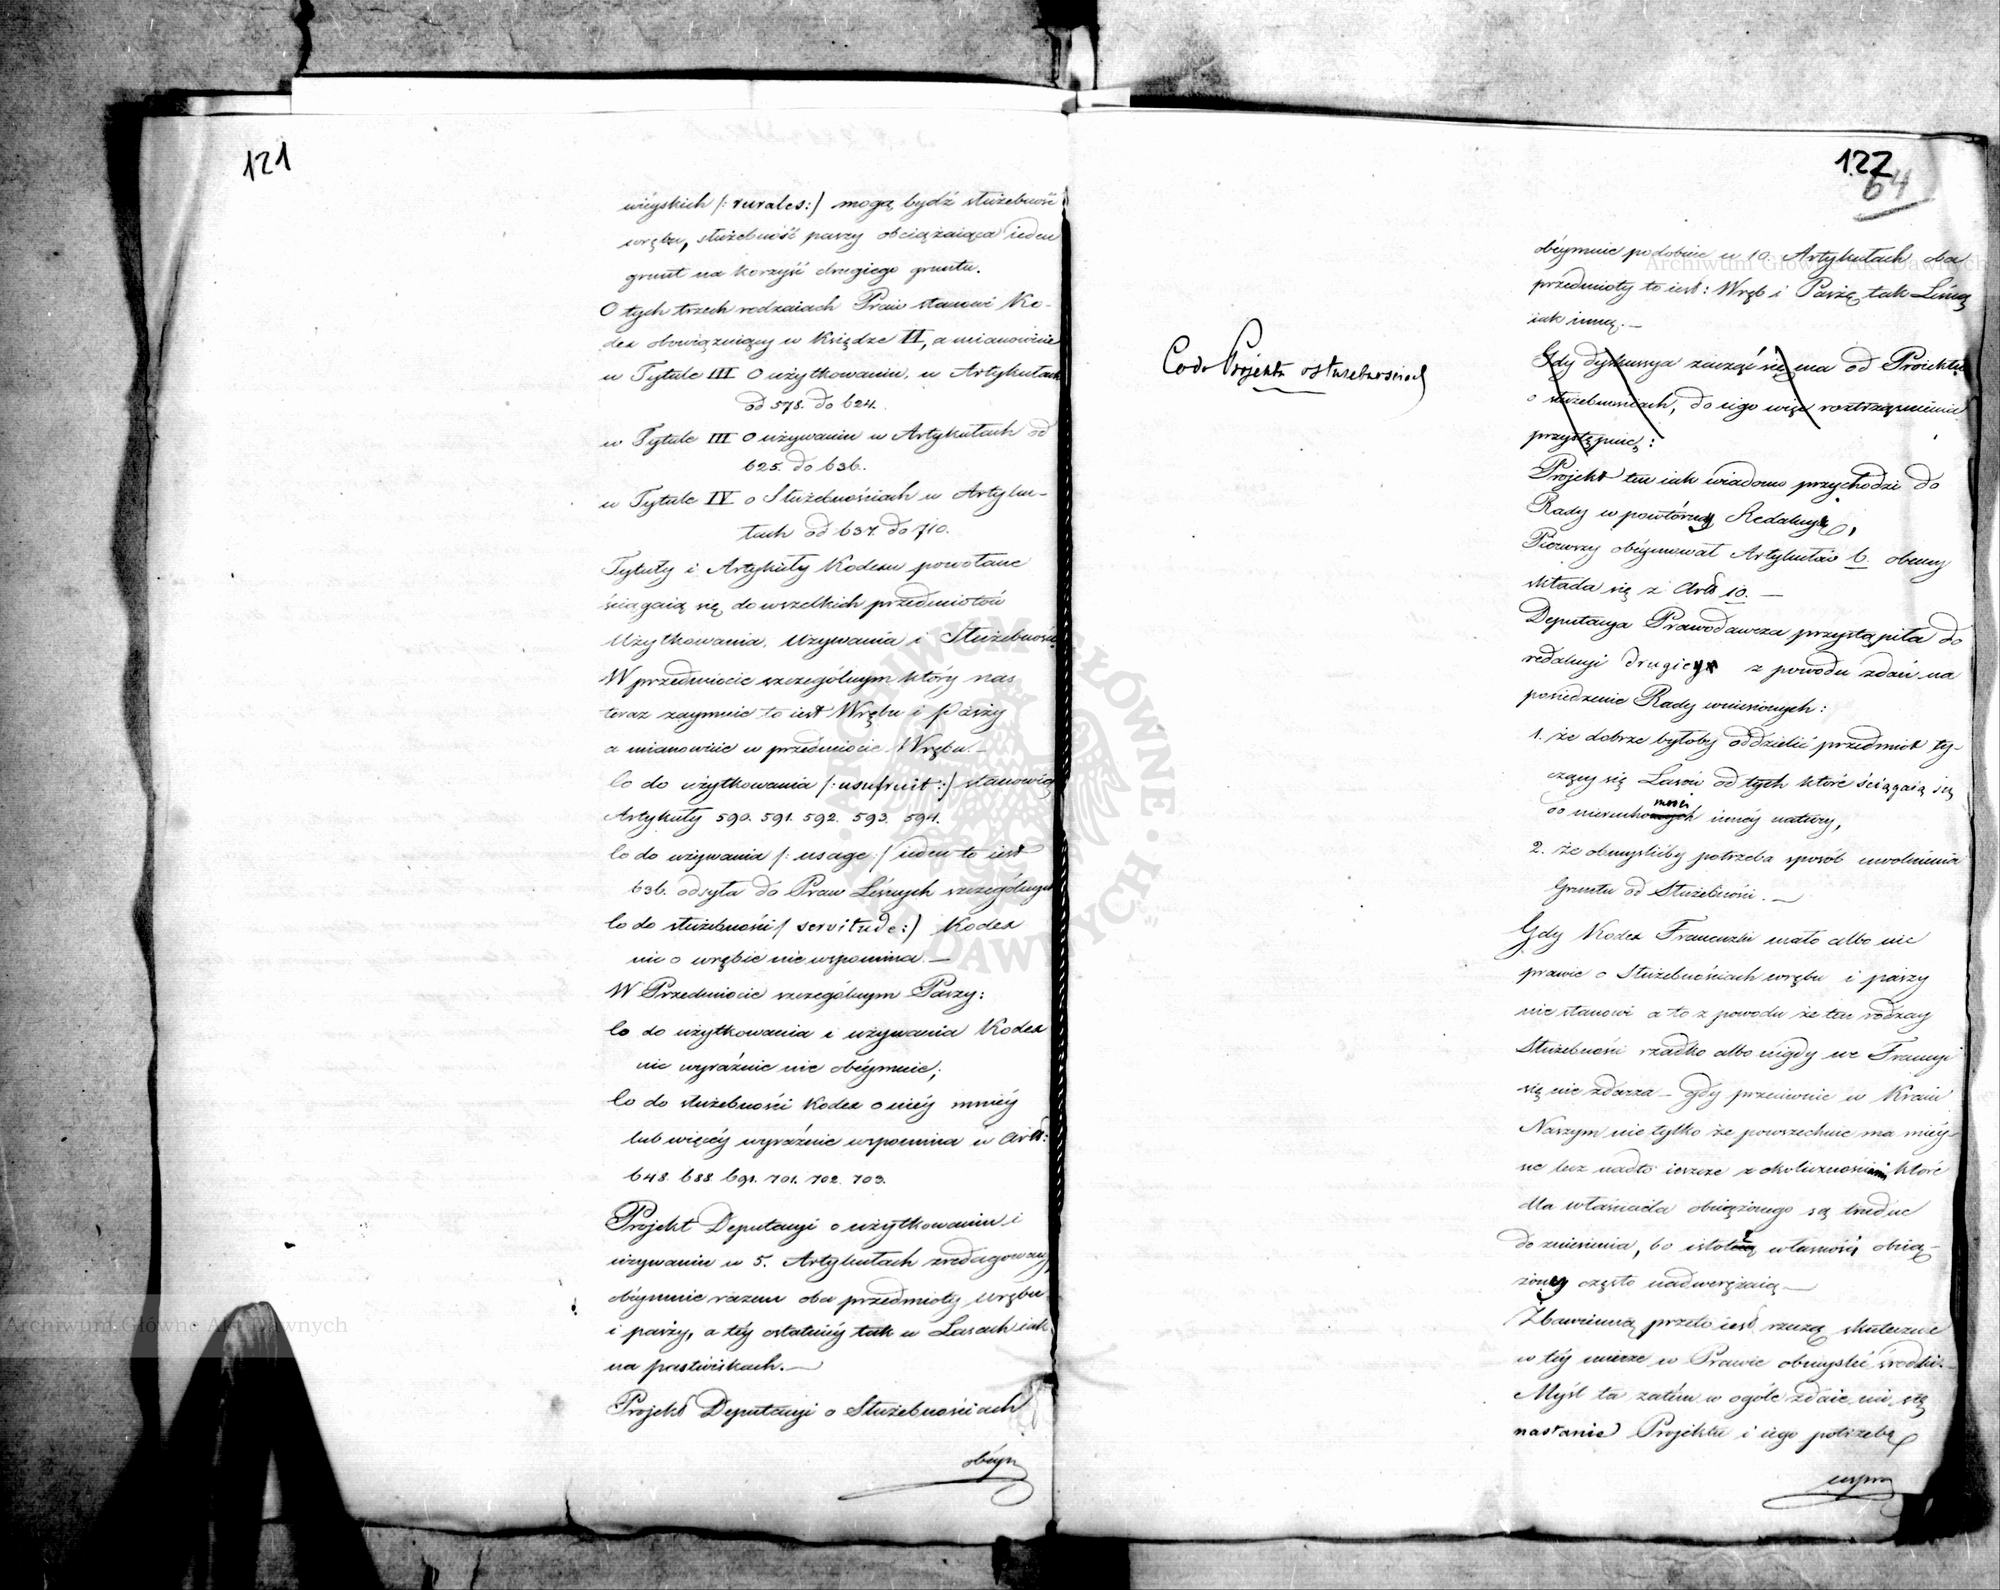 121
wieyskich /: rurales:/ mogą bydź służebność
wrębu, służebność paszy obciążaiąca ieden
grunt na korzyść drugiego gruntu.
O tych trzech rodzaiach Praw stanowi Ko-
dex obowiązuiący w Księdze II, a mianowicie
w Tytule III O użytkowaniu, w Artykułach
od 578. do 624.
w Tytule III O używaniu w Artykułach od
625. do 636.
w Tytule IV o Służebnościach w Artyku-
łach od 637. do 710.
Tytuły i Artykuły Kodexu powołane
ściągaią się do wszelkich przedmiotów
Użytkowania, Używania i Służebności
W przedmiocie szczególnym który nas
teraz zaymuie to iest Wrębu i Paszy
a mianowicie w przedmiocie Wrębu.—
Co do użytkowania /: usufruit :/ stanowią
Artykuły 590. 591. 592. 593. 594.
Co do używania /: usage :/ ieden to iest
636. odsyła do Praw Leśnych szczególnych
Co do służebności /: servitude :/ Kodex
nic o wrębie nie wspomina.—
W Przedmiocie szczególnym Paszy:
Co do użytkowania i używania Kodex
nic wyraźnie nie obeymuie;
Co do służebności Kodex o niéy mniéy
lub więcéy wyraźnie wspomina w Artt:
648. 688. 691. 701. 702. 703.
Projekt Deputacyi o użytkowaniu i
używaniu w 5. Artykułach zredagowany
obeymuie razem oba przedmioty wrębu
i paszy, a téy ostatniéy tak w Lasach iak
na pastwiskach.—
Projekt Deputacyi o Służebnościach
obeym
122
64
obeymuie podobnie w 10. Artykułach oba
przedmioty to iest: Wręb i Paszę tak Leśną
iak inną.—
Co do Projektu o służebnościach
Gdy dyskussya zacząć się ma od Projektu
o służebnościach, do iego więc roztrząśnienia
przystąpmię:
Projekt ten iak wiadomo przychodzi do
Rady w powtórnéy Redakcyi,
Pierwszy obeymował Artykułów 6. obecny
składa się z Artt 10.—
Deputacya Prawodawcza przystąpiła do
redakcyi drugiéy z powodu zdań na
posiedzenie Rady wniesionych:
1. że dobrze byłoby oddzielić przedmiot ty-
czący się Lasów od tych które ściągaią się
mości
do nieruchomych innéy natury,
2. że obmyślićby potrzeba sposób uwolnienia
Gruntu od Służebności.—
Gdy Kodex Francuzki mało albo nic
prawie o Służebnościach wrębu i paszy
nie stanowi a to z powodu że ten rodzay
Służebności rzadko albo nigdy we Francyi
się nie zdarza — gdy przeciwnie w Kraiu
Naszym nie tylko że powszechnie ma miéy-
sce lecz nadto ieszcze z okolicznościami które
dla właściciela obciążonego są trudne
do zniesienia, bo istotę własności obcią-
żonéy często nadwerężaią—
Zbawienną przeto iest rzeczą skuteczne
w téy mierze w Prawie obmyśleć środki.—
Myśl ta zatém w ogóle zdaie mi się
nastanie Projektu i iego potrzebę
uspra